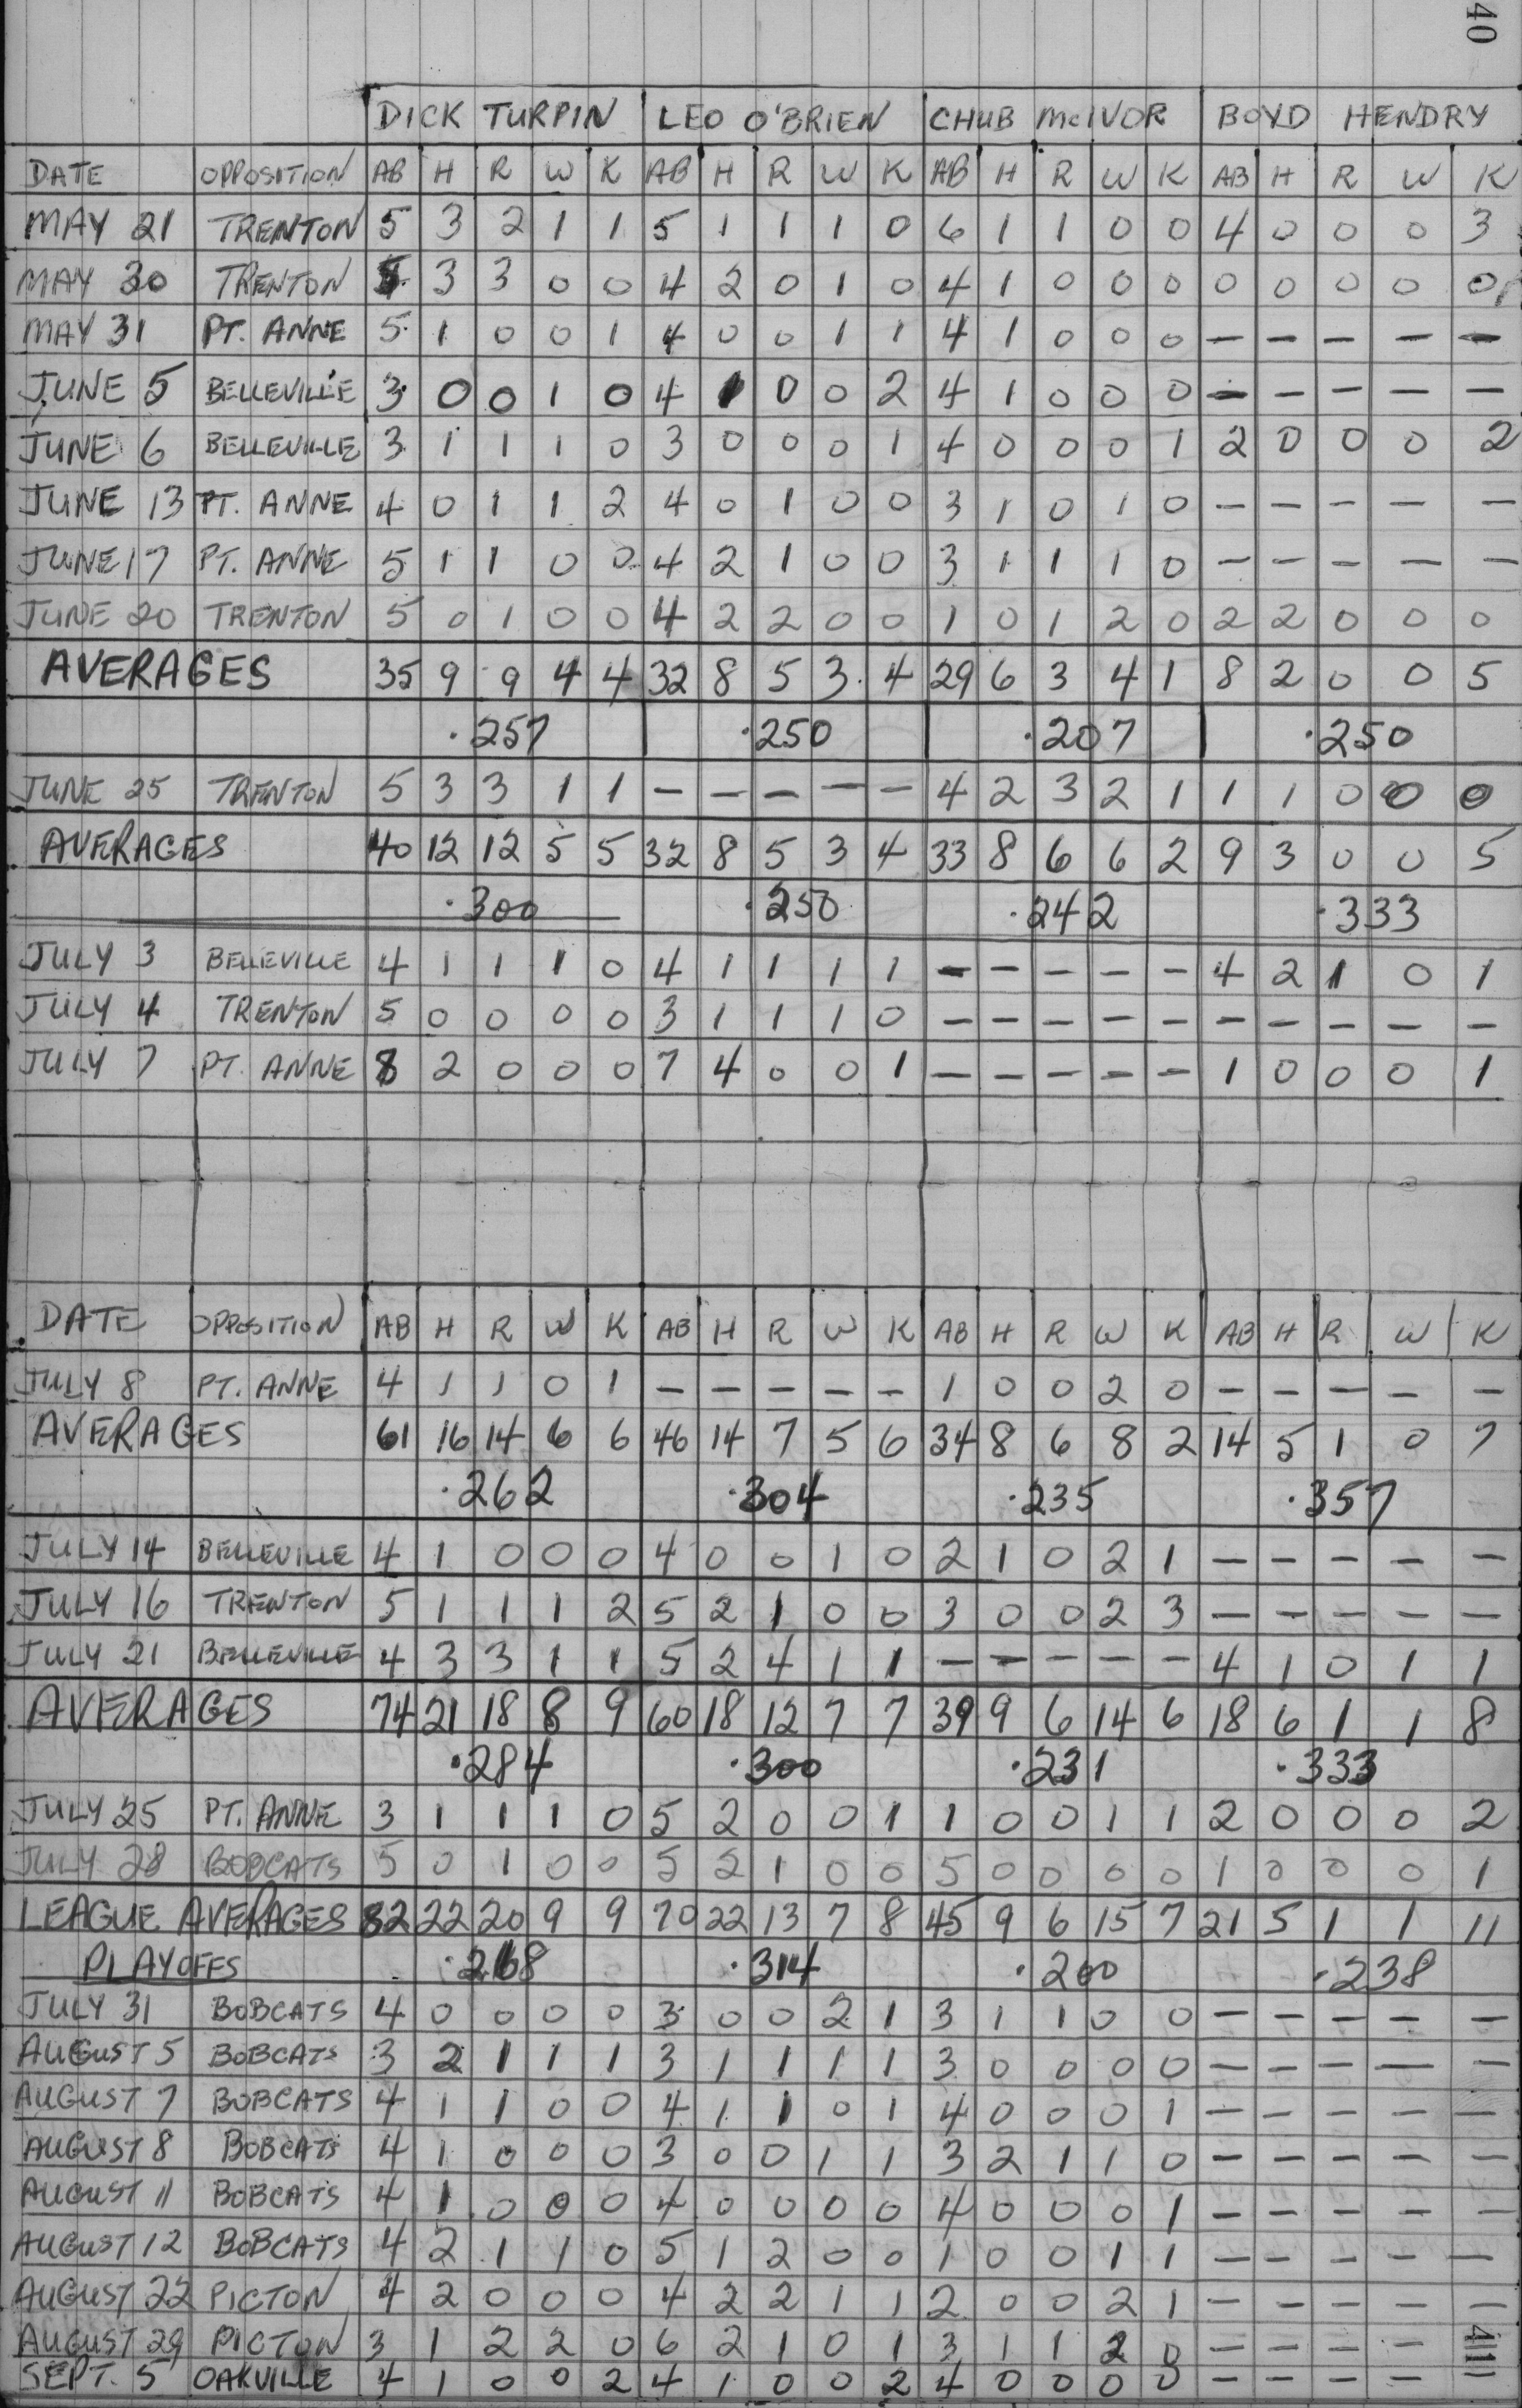 40
DICK TURPIN LEO O'BRIEN CHUB McIVOR BOYD HENDRY
DATE OPPOSITION AB H R W K AB H R W K AB H R W K AB H R W K
MAY 21 TRENTON 5 3 2 1 1 5 1 1 1 0 6 1 1 0 0 4 0 0 0 3
MAY 30 TRENTON 3 3 0 0 4 2 0 1 0 4 1 0 0 0 0 0 0 0 0
MAY 31 PT. ANNE 5 1 0 0 1 4 0 0 1 1 4 1 0 0 0 — — — — —
JUNE 5 BELLEVILLE 3 0 0 1 0 4 1 0 0 2 4 1 0 0 0 — — — — —
JUNE 6 BELLEVILLE 3 1 1 1 0 3 0 0 0 1 4 0 0 0 1 2 0 0 0 2
JUNE 13 PT. ANNE 4 0 1 1 2 4 0 1 0 0 3 1 0 1 0 — — — — —
JUNE 17 PT. ANNE 5 1 1 0 0 4 2 1 0 0 3 1 1 1 0 — — — — —
JUNE 20 TRENTON 5 0 1 0 0 4 2 2 0 0 1 0 1 2 0 2 2 0 0 0
AVERAGES 35 9 9 4 4 32 8 5 3 4 29 6 3 4 1 8 2 0 0 5
.257 .250 .207 .250
JUNE 25 TRENTON 5 3 3 1 1 — — — — — 4 2 3 2 1 1 1 0 0 0
AVERAGES 40 12 12 5 5 32 8 5 3 4 33 8 6 6 2 9 3 0 0 5
.300 .250 .242 .333
JULY 3 BELLEVILLE 4 1 1 1 0 4 1 1 1 1 — — — — — 4 2 1 0 1
JULY 4 TRENTON 5 0 0 0 0 3 1 1 1 0 — — — — — — — — — —
JULY 7 PT. ANNE 8 2 0 0 0 7 4 0 0 1 — — — — — 1 0 0 0 1
DATE OPPOSITION AB H R W K AB H R W K AB H R W K AB H R W K
JULY 8 PT. ANNE 4 1 1 0 1 — — — — — 1 0 0 2 0 — — — — —
AVERAGES 61 16 14 6 6 46 14 7 5 6 34 8 6 8 2 14 5 1 0 7
.262 .304 .235 .357
JULY 14 BELLEVILLE 4 1 0 0 0 4 0 0 1 0 2 1 0 2 1 — — — — —
JULY 16 TRENTON 5 1 1 1 2 5 2 1 0 0 3 0 0 2 3 — — — — —
JULY 21 BELLEVILLE 4 3 3 1 1 5 2 4 1 1 — — — — — 4 1 0 1 1
AVERAGES 74 21 18 8 9 60 18 12 7 7 39 9 6 14 6 18 6 1 1 8
.284 .300 .231 .333
JULY 25 PT. ANNE 3 1 1 1 0 5 2 0 0 1 1 0 0 1 1 2 0 0 0 2
JULY 28 BOBCATS 5 0 1 0 0 5 2 1 0 0 5 0 0 0 0 1 0 0 0 1
LEAGUE AVERAGES 82 22 20 9 9 70 22 13 7 8 45 9 6 15 7 21 5 1 1 11
PLAYOFFS .268 .314 .200 .238
JULY 31 BOBCATS 4 0 0 0 0 3 0 0 2 1 3 1 1 0 0 — — — — —
AUGUST 5 BOBCATS 3 2 1 1 1 3 1 1 1 1 3 0 0 0 0 — — — — —
AUGUST 7 BOBCATS 4 1 1 0 0 4 1 1 0 1 4 0 0 0 1 — — — — —
AUGUST 8 BOBCATS 4 1 0 0 0 3 0 0 1 1 3 2 1 1 0 — — — — —
AUGUST 11 BOBCATS 4 1 0 0 0 4 0 0 0 0 4 0 0 0 1 — — — — —
AUGUST 12 BOBCATS 4 2 1 1 0 5 1 2 0 0 1 0 0 1 1 — — — — —
AUGUST 22 PICTON 4 2 0 0 0 4 2 2 1 1 2 0 0 2 1 — — — — —
AUGUST 29 PICTON 3 1 2 2 0 6 2 1 0 1 3 1 1 2 0 — — — —
SEPT. 5 OAKVILLE 4 1 0 0 2 4 1 0 0 2 4 0 0 0 0 — — — —